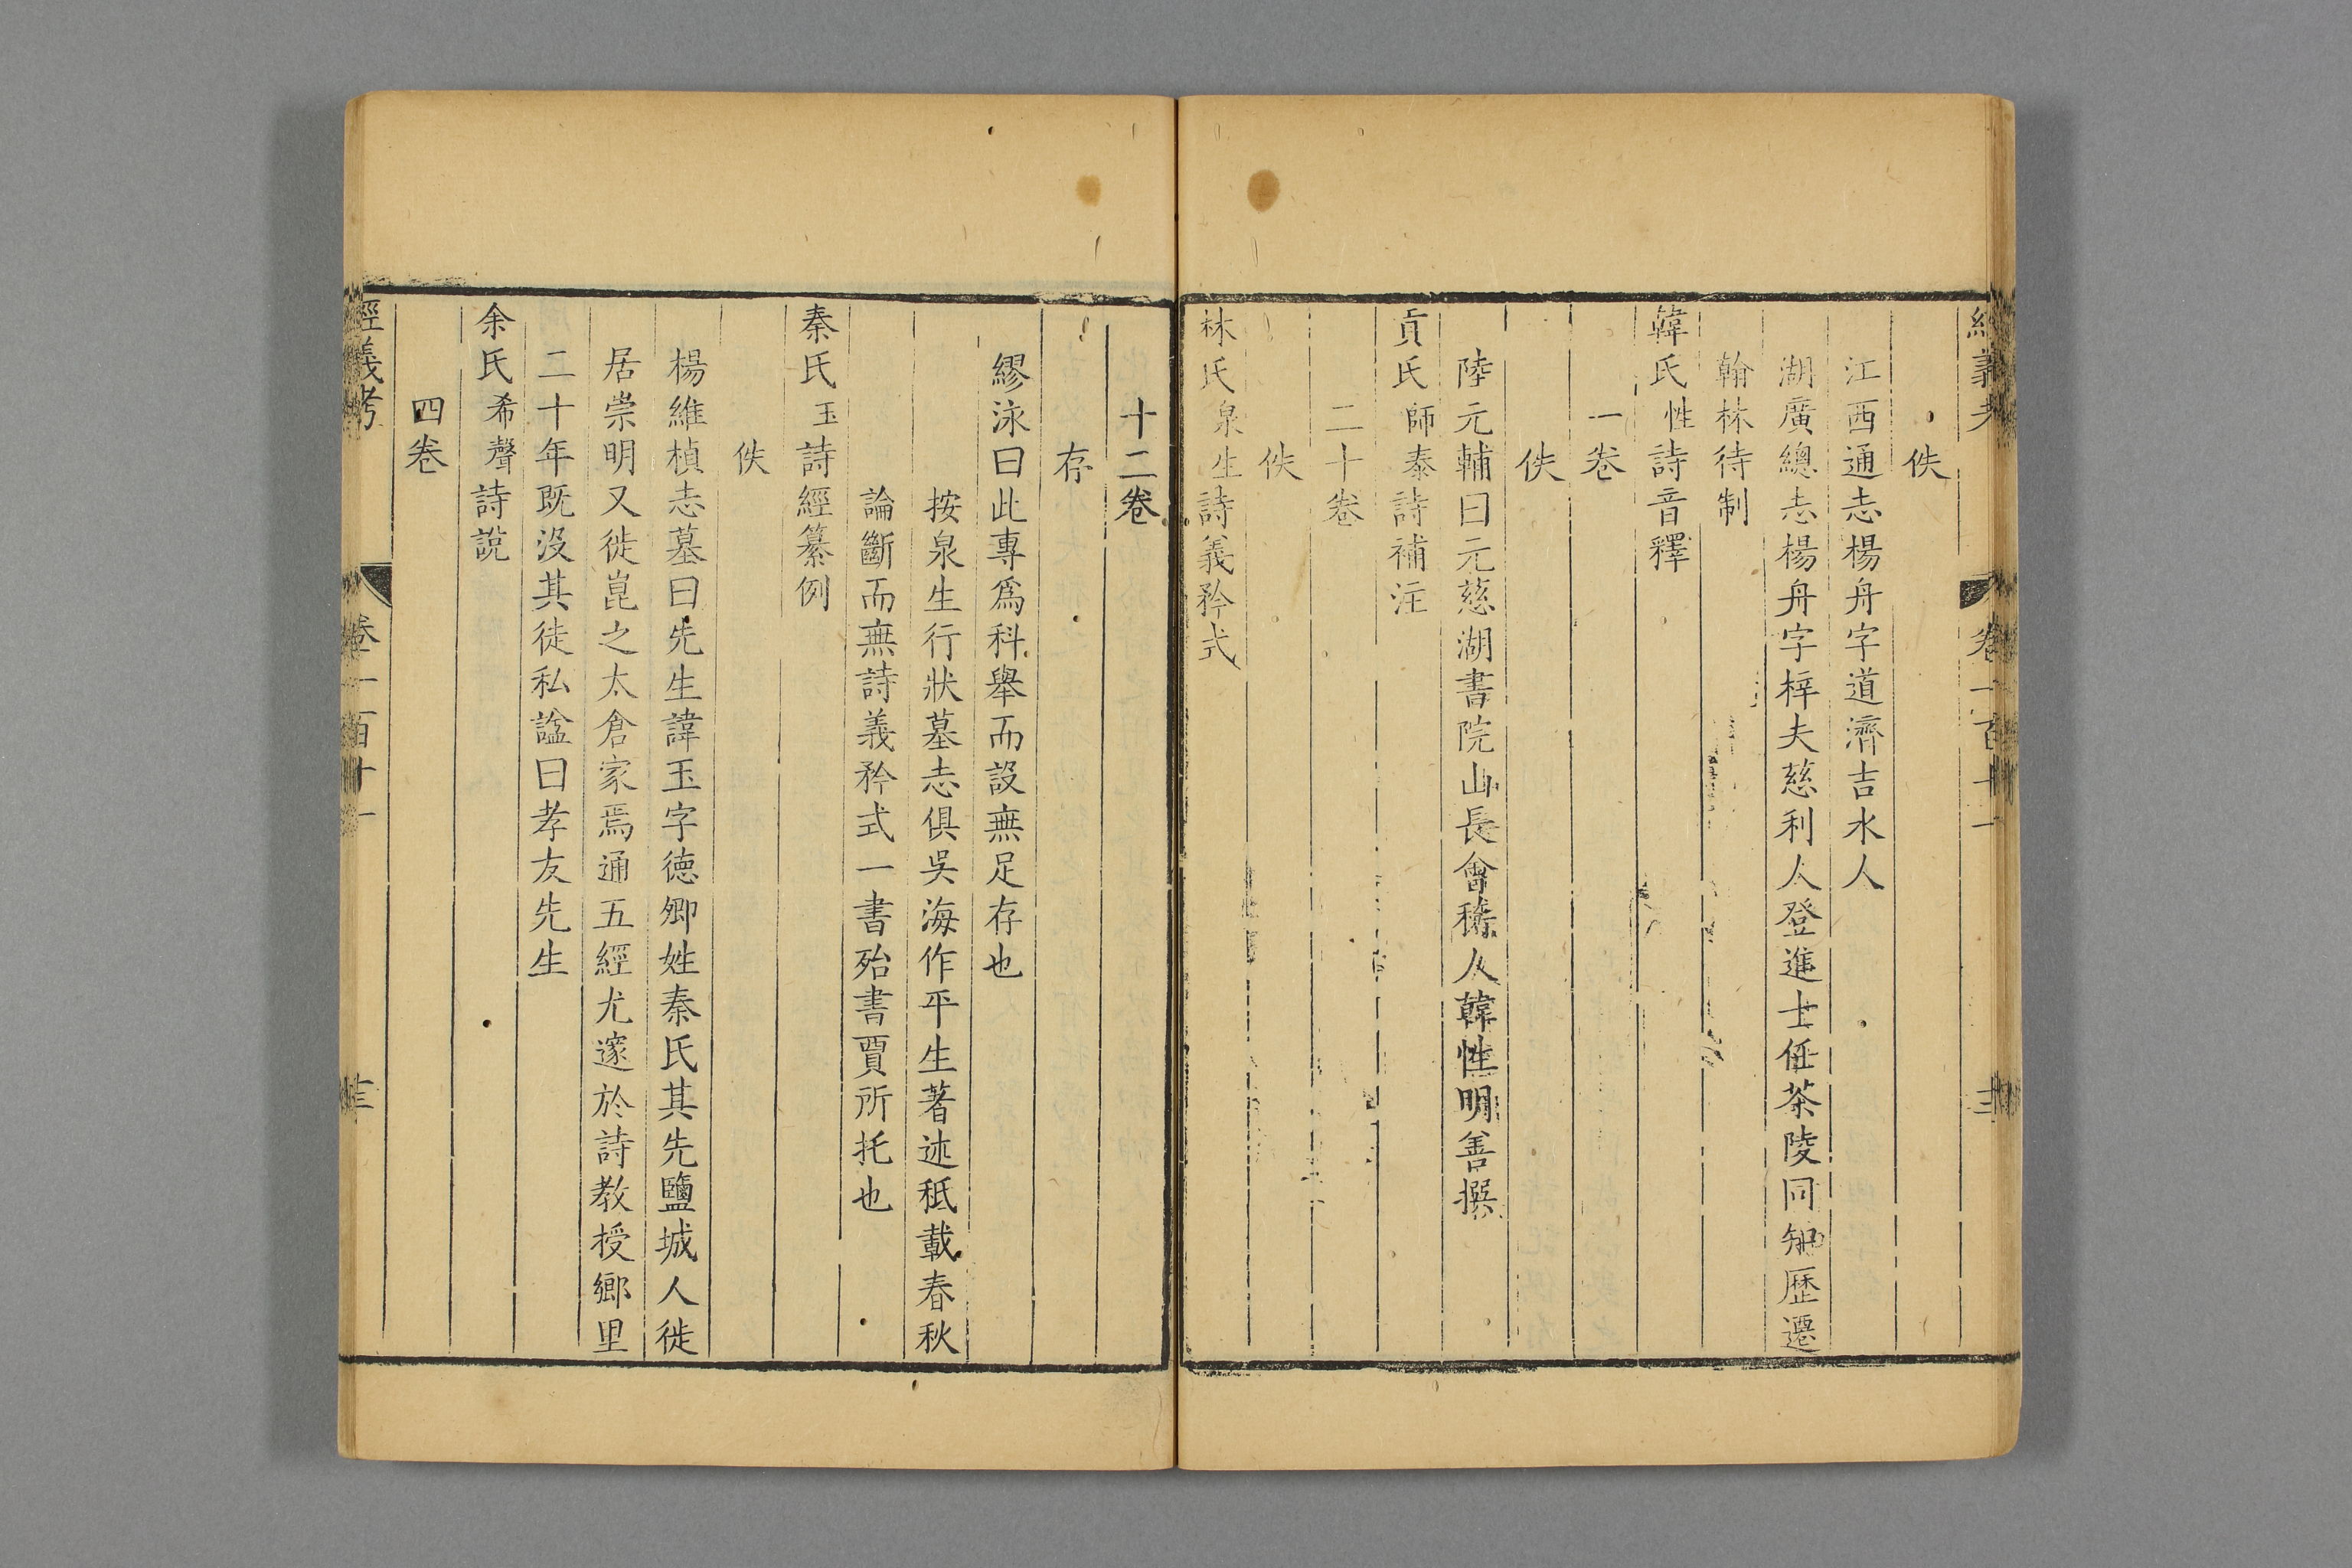 經義考 卷一百十一
佚
江西通志楊舟字道濟吉水人
湖廣總志楊舟字梓夫慈利人登進士任茶陵同知歷遷
翰林待制
韓氏性詩音釋
一卷
佚
陸元輔曰元慈湖書院山長會稽人韓性明善撰
貢氏師泰詩補注
二十卷
佚
林氏泉生詩義矜式
十二卷
存
繆泳曰此專爲科舉而設無足存也
按泉生行狀墓志俱吳海作平生著述秪載春秋
論斷而無詩義矜式一書殆書賈所托也
秦氏玉詩經纂例
佚
楊維楨志墓曰先生諱玉字德卿姓秦氏其先鹽城人徙
居崇明又徙崑之太倉家焉通五經尤邃於詩教授鄉里
二十年既没其徒私諡曰孝友先生
余氏希聲詩說
四卷
經義考 卷一百十一